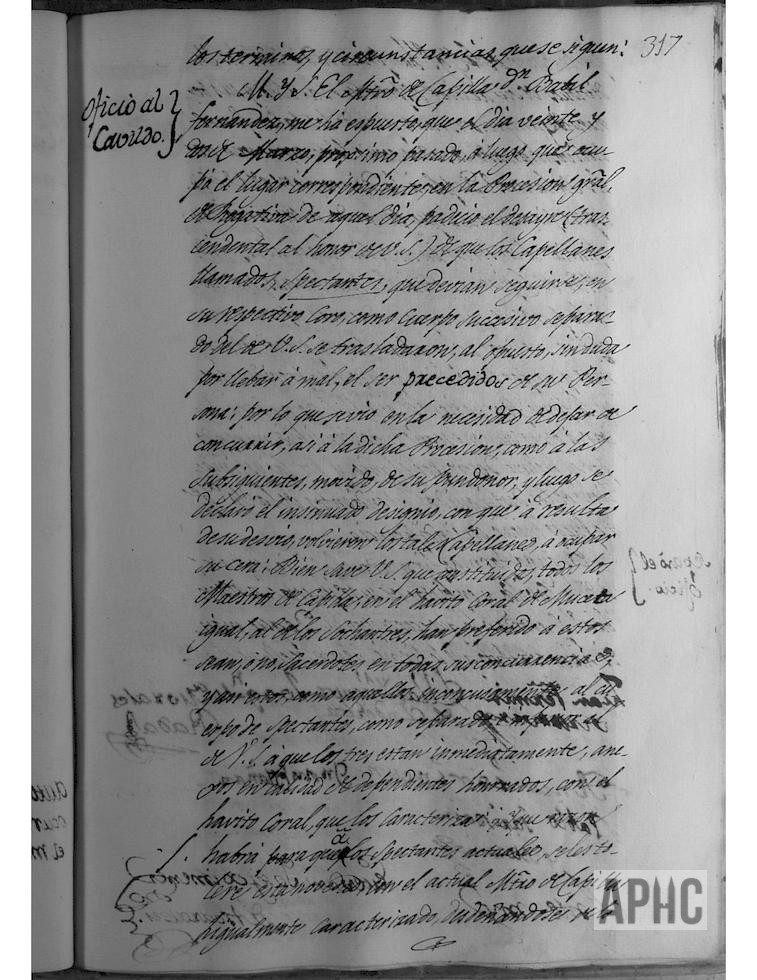 317
los terminos, y circunstancias, que se siguen:
Oficio al
Cavildo.
M. Y. S. El Mtro de Capilla Dn. Basil
fernandez, me ha espuesto, que el dia veinte y
dos de Marzo, proximo pasado, a luego que ocu-
pó el lugar correspondiente, en la Procesion gral.
de Rogativa de aquel dia, padeció el desayre (tras
cendental al honor de V. S.) de que los Capellanes
llamados, Spectantes, que devian seguirse, en
su respectivo Coro, como Cuerpo succesivo separa-
do del de V. S. se trasladaron, al opuesto, sin duda
por llebar á mal, el ser precedidos de su Per-
sona: por lo que se vio en la necesidad de dejar de
concurrir, asi á la dicha Procesion, como á las
subsiguientes, movido, de su pundonor, y luego se
declaró el insinuado designio, con que á resulta
de su desvio, volvieron los tales Capellanes, á ocupar
su cera: Bien save V. S. que instituidos, todos los
Maestros de Capilla, en el havito Coral de Muceta
igual, al de los Sochantres, han preferido á estos
sean, ó no, Sacerdotes, en todas sus concurrencias,
y asi estos, como aquellos, al cu-
erpo de Spectantes, como separado, del
de V. S. á que los tres estan inmediatamente, ane-
xos en calidad de dependientes honrados, con el
havito Coral, que los Caracteriza: Y que razon
habrá para que á los Spectantes actuales, se les to-
lere esta novedad, con el actual Mtro de Capilla
igualmente Caracterizado, desdeñandose de